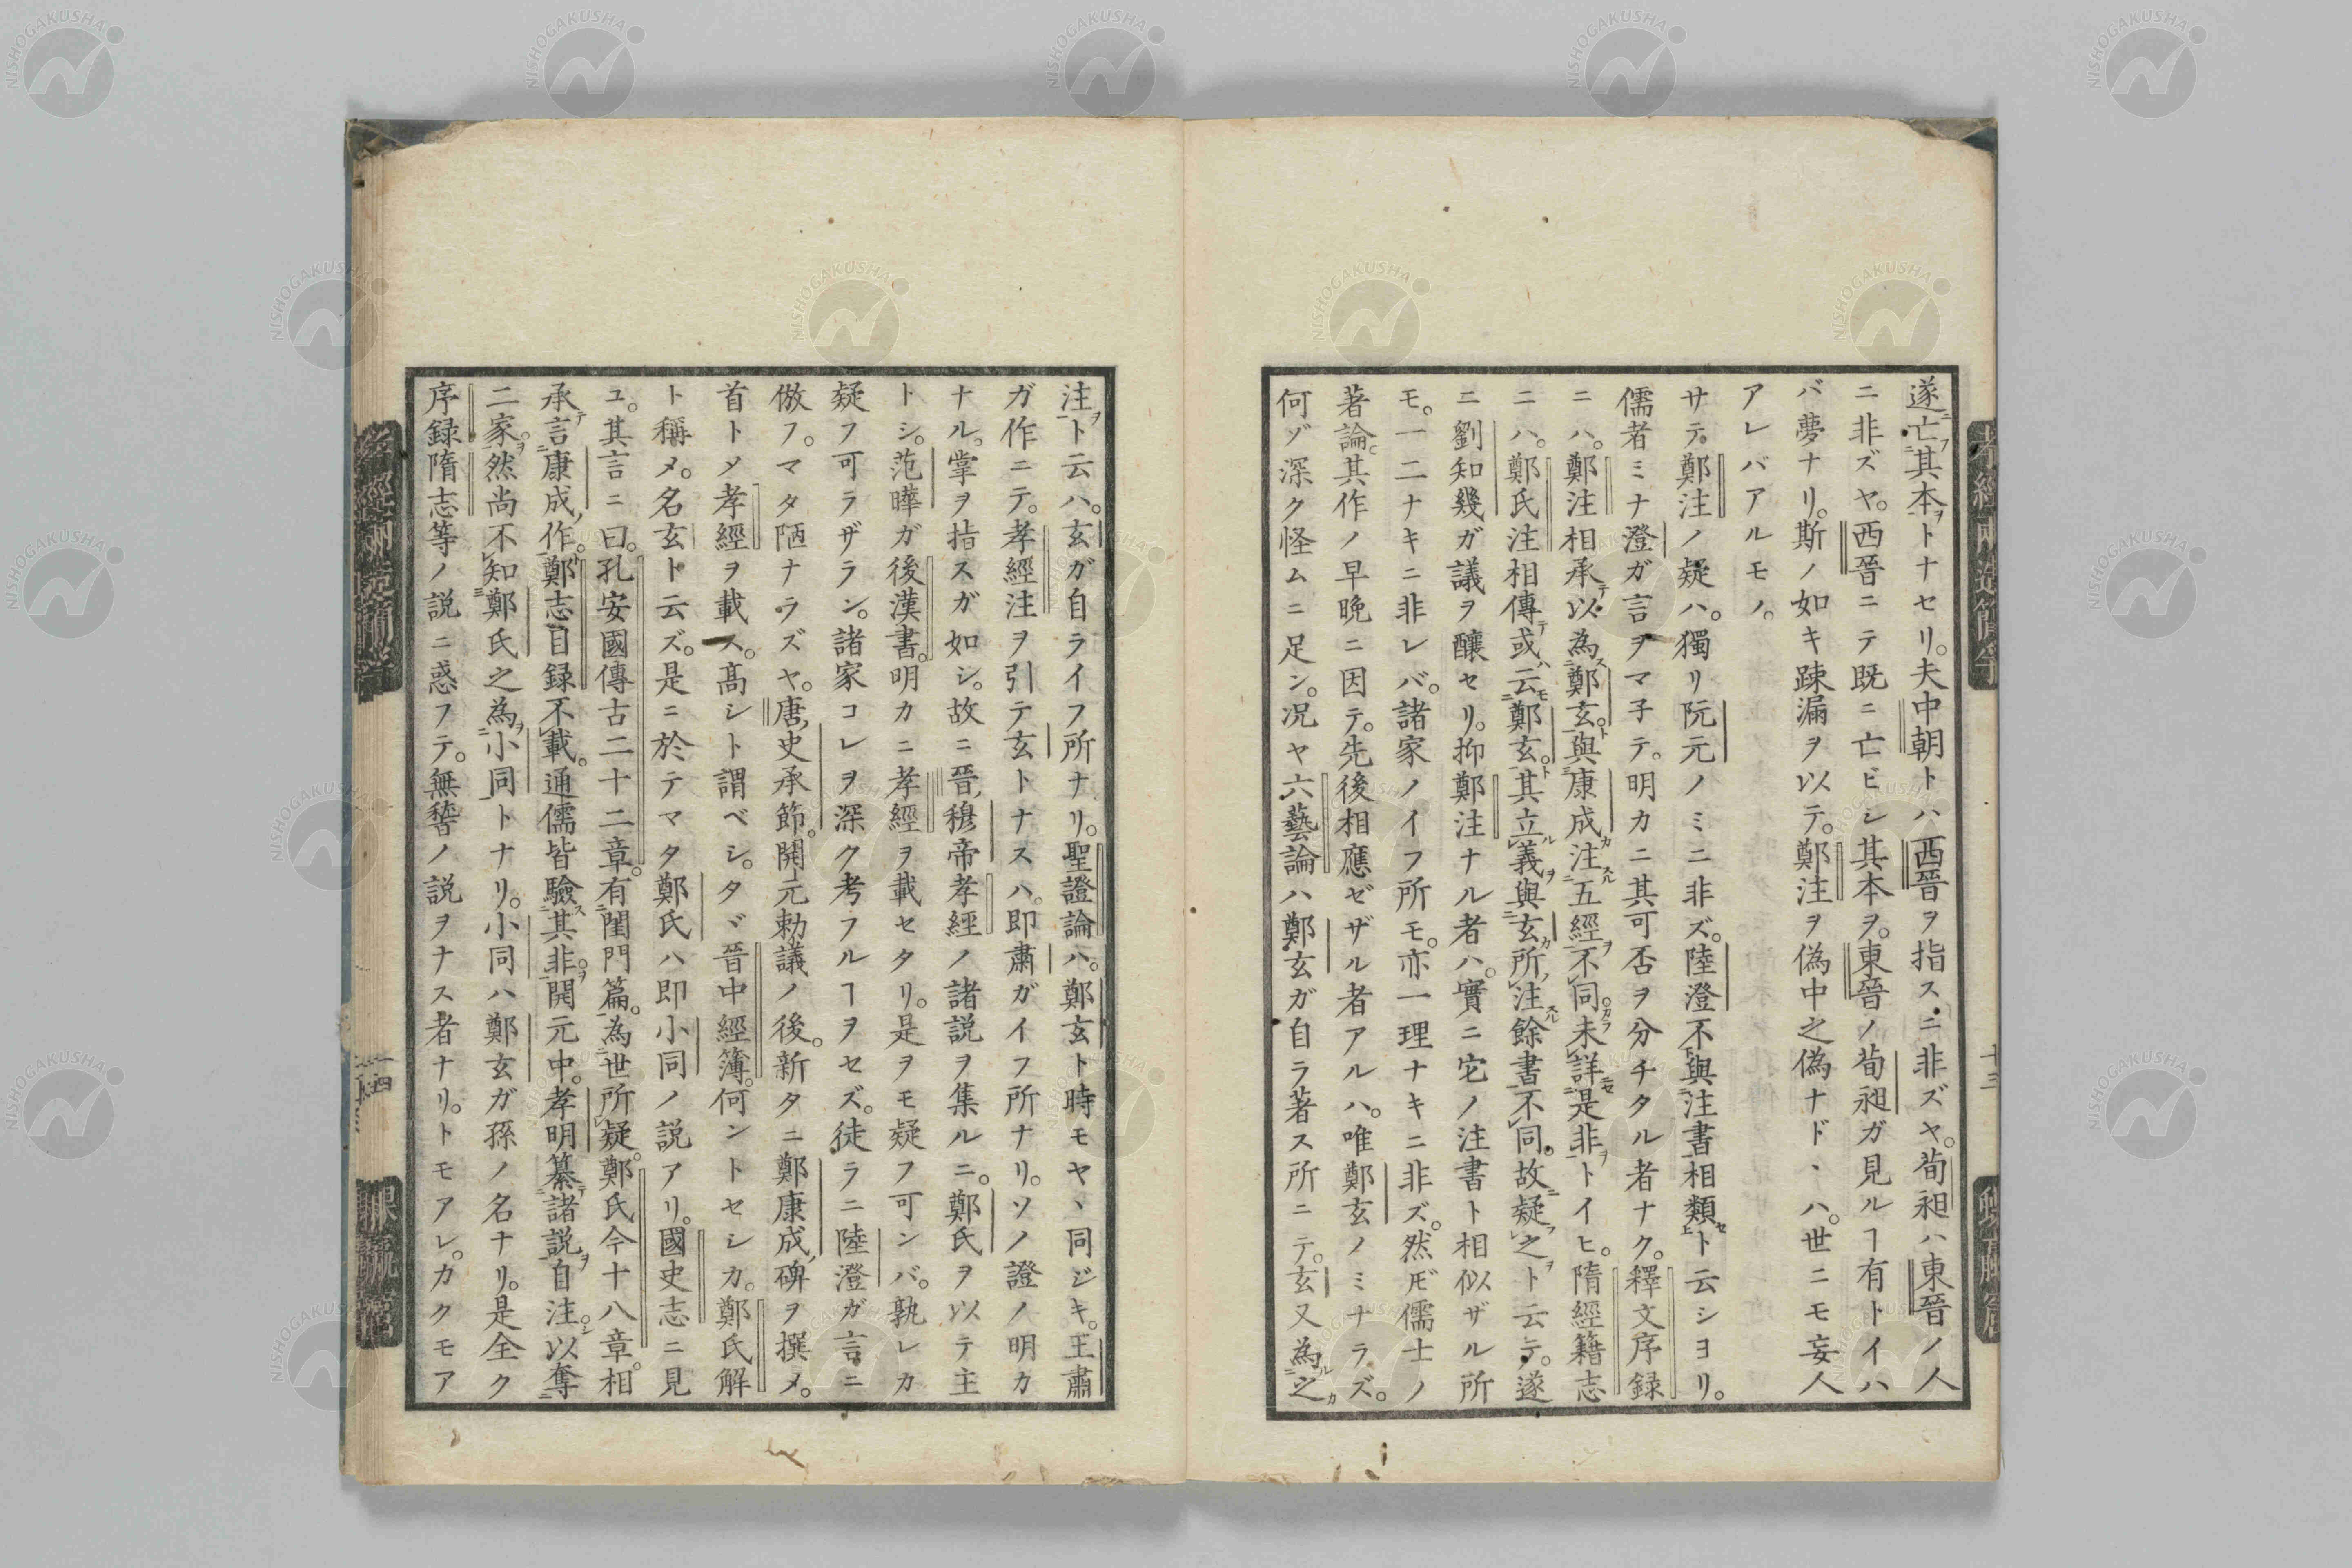 遂亡其本トナセリ。夫中朝トハ西晉ヲ指スニ非ズヤ。荀昶ハ東晉ノ人
ニ非ズヤ。西晉ニテ既ニ亡ビシ其本ヲ。東晉ノ荀昶ガ見ルヿ有トイハ
バ夢ナリ。斯ノ如キ踈漏ヲ以テ。鄭注ヲ偽中之偽ナドヽハ。世ニモ妄人
アレバアルモノ。
サテ鄭注ノ疑ハ。獨リ阮元ノミニ非ズ。陸澄不與注書相類ト云シヨリ。
儒者ミナ澄ガ言ヲマ子テ。明カニ其可否ヲ分チタル者ナク。釋文序録
ニハ。鄭注相承以為鄭玄。與康成注五經不同。未詳是非トイヒ。隋經籍志
ニハ。鄭氏注相傳或云鄭玄。其立義與玄所注餘書不同。故疑之ト云テ。遂
ニ劉知幾ガ議ヲ釀セリ。抑鄭注ナル者ハ。實ニ它ノ注書ト相似ザル所
モ。一二ナキニ非レバ。諸家ノイフ所モ。亦一理ナキニ非ズ。然𪜈儒士ノ
著論。其作ノ早晩ニ因テ。先後相應ゼザル者アルハ。唯鄭玄ノミナラズ。
何ゾ深ク怪ムニ足ン。況ヤ六藝論ハ鄭玄ガ自ラ著ス所ニテ。玄又為之
注ト云ハ。玄ガ自ライフ所ナリ。聖證論ハ。鄭玄ト時モヤヽ同ジキ。王肅
ガ作ニテ。孝經注ヲ引テ玄トナスハ。即肅ガイフ所ナリ。ソノ證ノ明カ
ナル。掌ヲ指スガ如シ。故ニ晉穆帝孝經ノ諸説ヲ集ルニ。鄭氏ヲ以テ主
トシ。范曄ガ後漢書。明カニ孝經ヲ載セタリ。是ヲモ疑フ可ンバ。孰レカ
疑フ可ラザラン。諸家コレヲ深ク考フルヿヲセズ。徒ラニ陸澄ガ言ニ
倣フ。マタ陋ナラズヤ。唐史承節。開元勅議ノ後。新タニ鄭康成碑ヲ撰メ。
首トメ孝經ヲ載ス。髙シト謂ベシ。タヾ晉中經簿。何ントセシカ。鄭氏解
ト稱メ。名玄ト云ズ。是ニ於テマタ鄭氏ハ即小同ノ説アリ。國史志ニ見
ユ。其言ニ曰。孔安國傳古二十二章。有閨門篇。為世所疑。鄭氏今十八章。相
承言康成作。鄭志目録不載。通儒皆驗其非。開元中。孝明纂諸説自注。以奪
二家。然尚不知鄭氏之為小同トナリ。小同ハ鄭玄ガ孫ノ名ナリ。是全ク
序録隋志等ノ説ニ惑フテ。無稽ノ説ヲナス者ナリ。トモアレ。カクモア